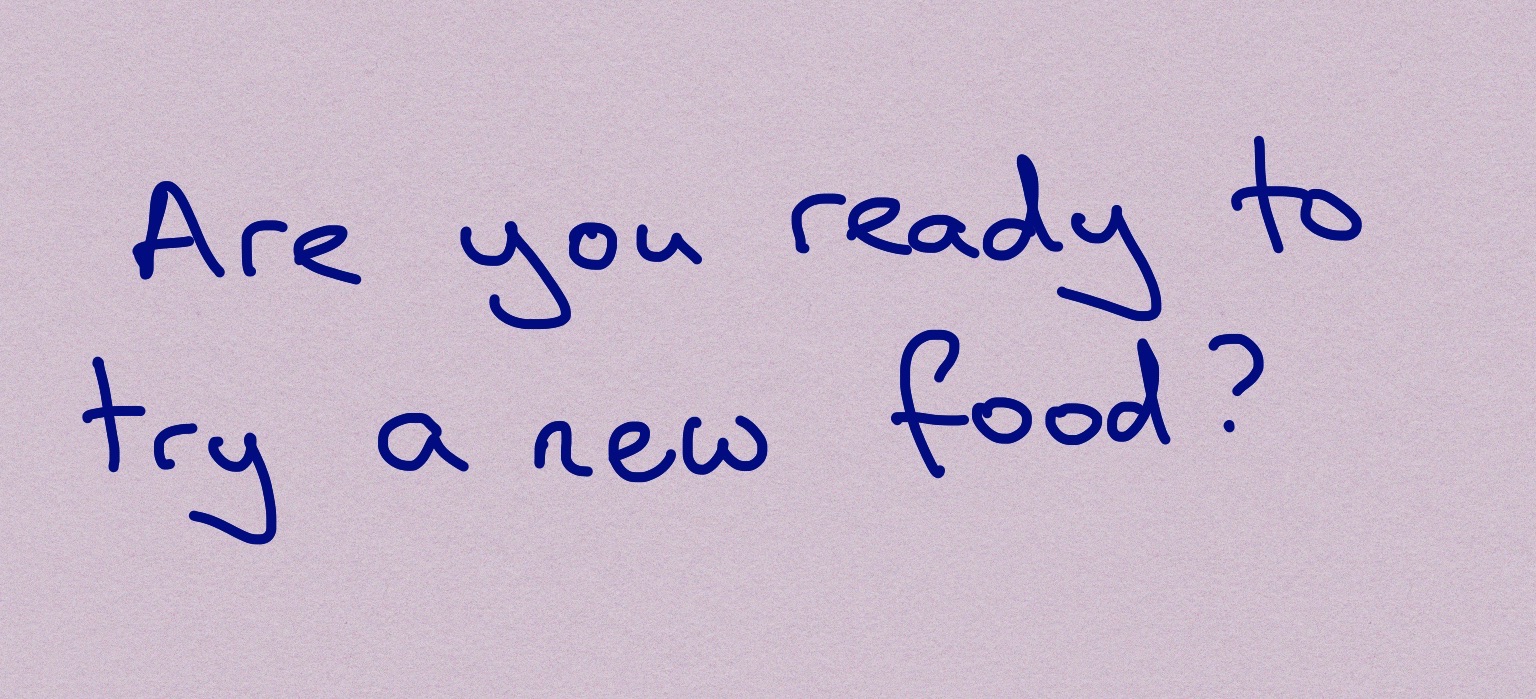 Are you ready to
try a new food?